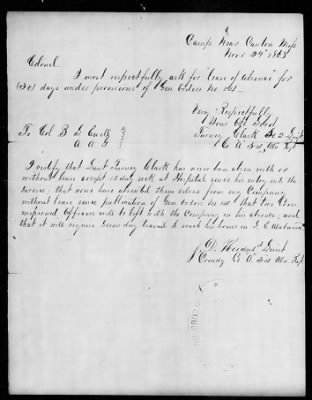 Camp Near Canton Miss
Nov 24th 1863
Colonel.
I most respectfully ask for "leave of absence" for
(30) days under provisions of Gen Orders No 141
Very Respectfully
Your Obt Servt
Turney Clark 2 Lieut
Co A Ala Regt
To Col B S Ewell
A A G
I certify that Lieut Turney Clark has never been absent with or
without leave except 15 days sick at Hospital since his entry into the
service; that none have absented themselves from my Company
without leave since publication of Gen Orders No 141 that two Com
missioned Officers will be left with the Company in his absence; and
that it will require seven days travel to reach his home in Alabama
J. D. Lieut
Comdg Co A Ala Regt